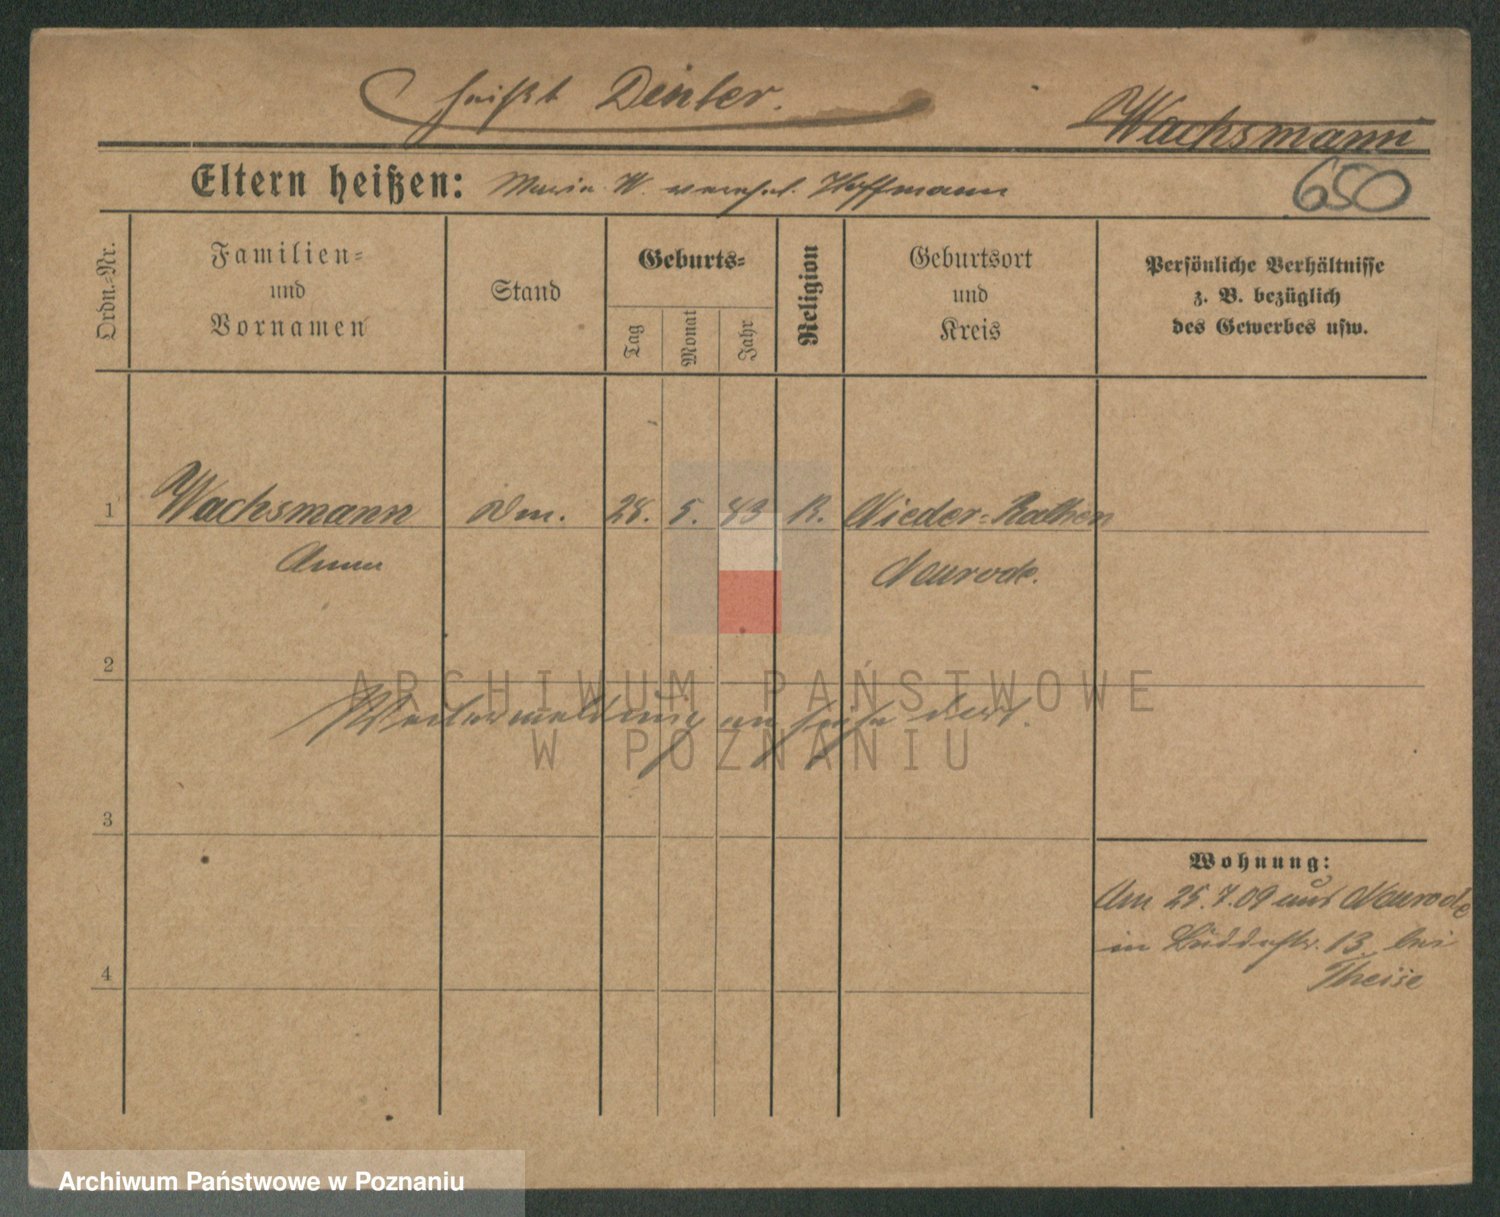 heißt Dinter.
Wachsmann
Eltern heißen: Marie W. verehel. Hoffmann
650
Ordn.-Nr.
Familien-
und
Vornamen
Stand
Geburts-
Tag
Monat
Jahr
Religion
Geburtsort
und
Kreis
Persönliche Verhältnisse
z. B. bezüglich
des Gewerbes usw.
1 Wachsmann 28. 5. 83 K. Nieder-Rathen
Anna Neurode.
2
ARCHIWUM PAŃSTWOWE
Weitermeldung an
W POZNANIU
3
Wohnung:
Am 25.7.09 aus Neurode
in 13 bei
4
Theise
Archiwum Państwowe w Poznaniu